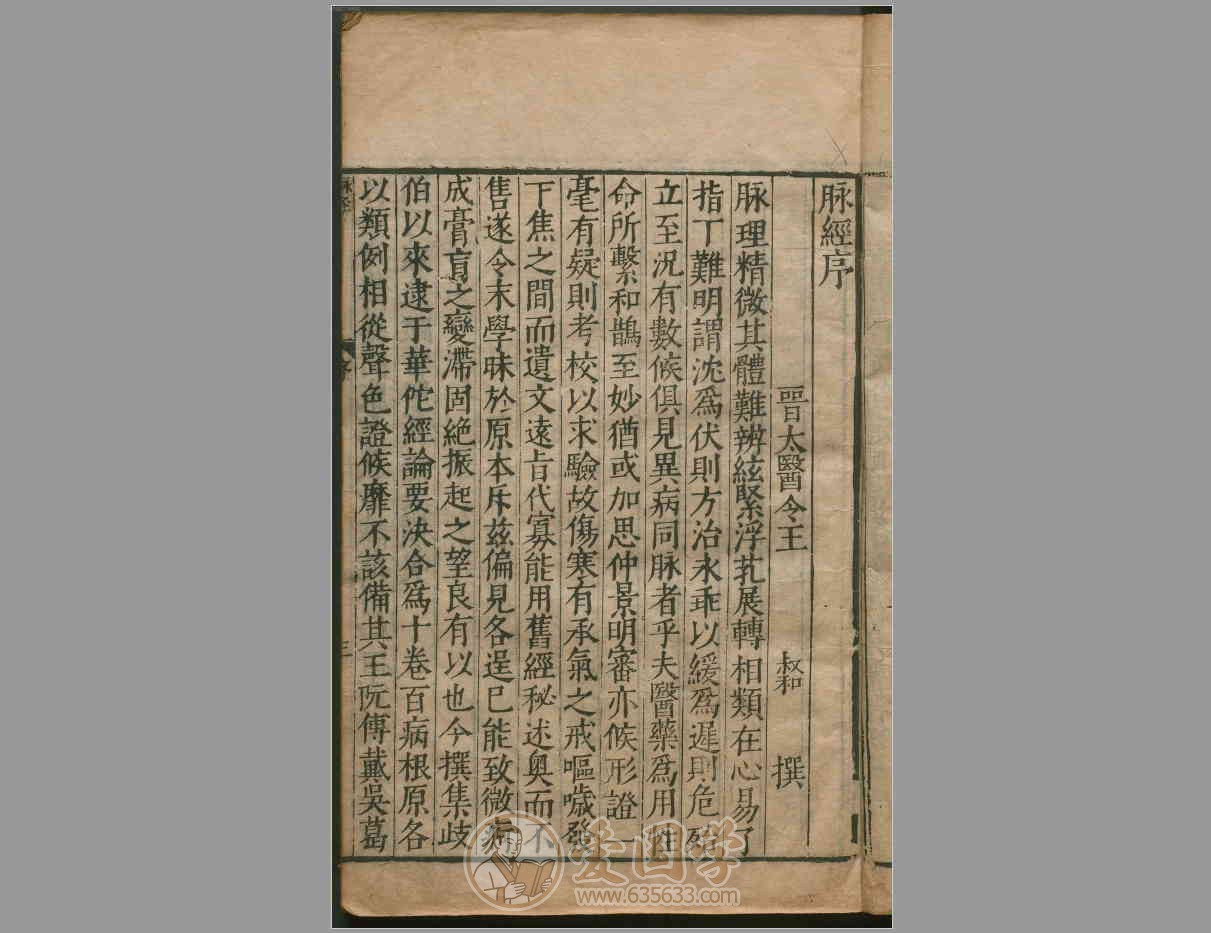 脉經序
晉太醫令王 叔和 撰
脉理精微其體難辨絃緊浮芤展轉相類在心易了
指丁難明謂沈爲伏則方治永乖以緩爲遲則危殆
立至況有數候俱見異病同脉者乎夫醫藥爲用性
命所繫和鵲至妙猶或加思仲景明審亦候形證一
毫有疑則考校以求驗故傷寒有承氣之戒嘔噦發
下焦之間而遺文遠旨代寡能用舊經秘述奥而不
售遂令末學昧於原本斥兹偏見各逞已能致微病
成膏肓之變滯固絶振起之望良有以也今撰集歧
伯以來逮于華佗經論要決合爲十卷百病根原各
以類例相從聲色證候靡不該備其王阮傅戴吳葛
脉經
序
三
爱国学
www.635633.com